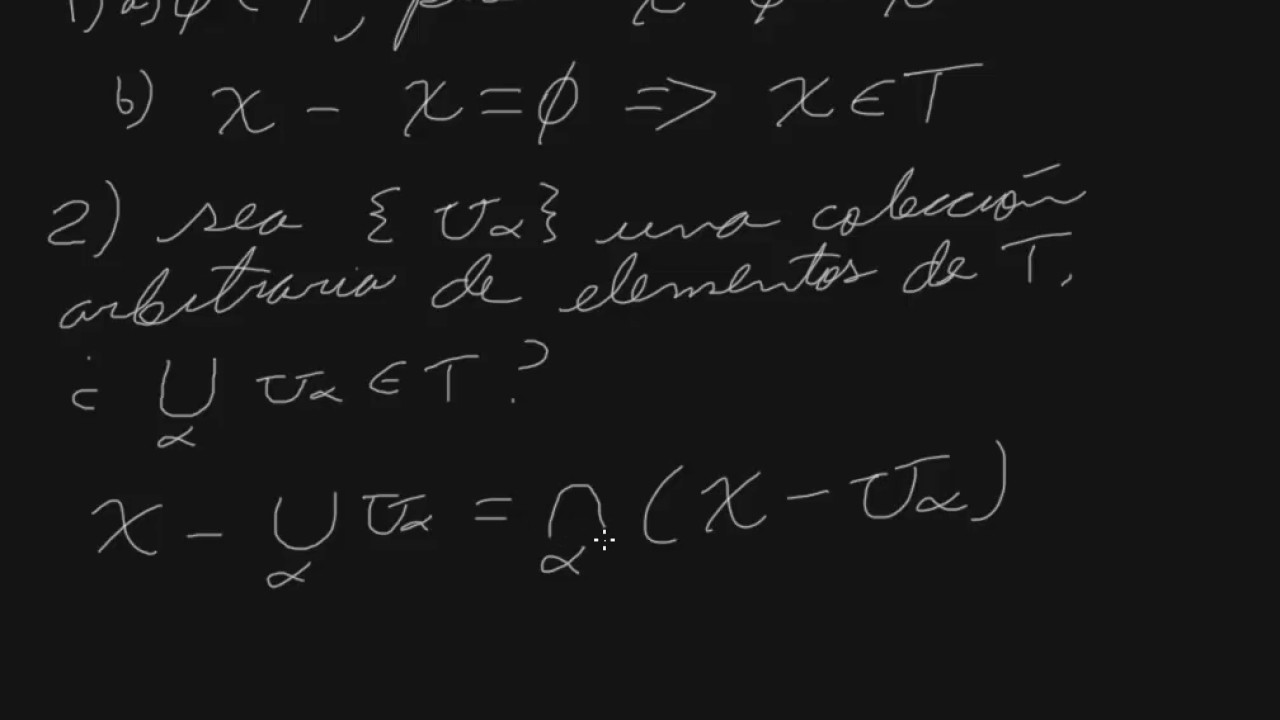 1) a) ϕ
b) X - X = ϕ => X ∈ T
2) sea { U_α } una colección
arbitraria de elementos de T,
¿ ⋃_α U_α ∈ T ?
X - ⋃_α U_α = ⋂_α ( X - U_α )